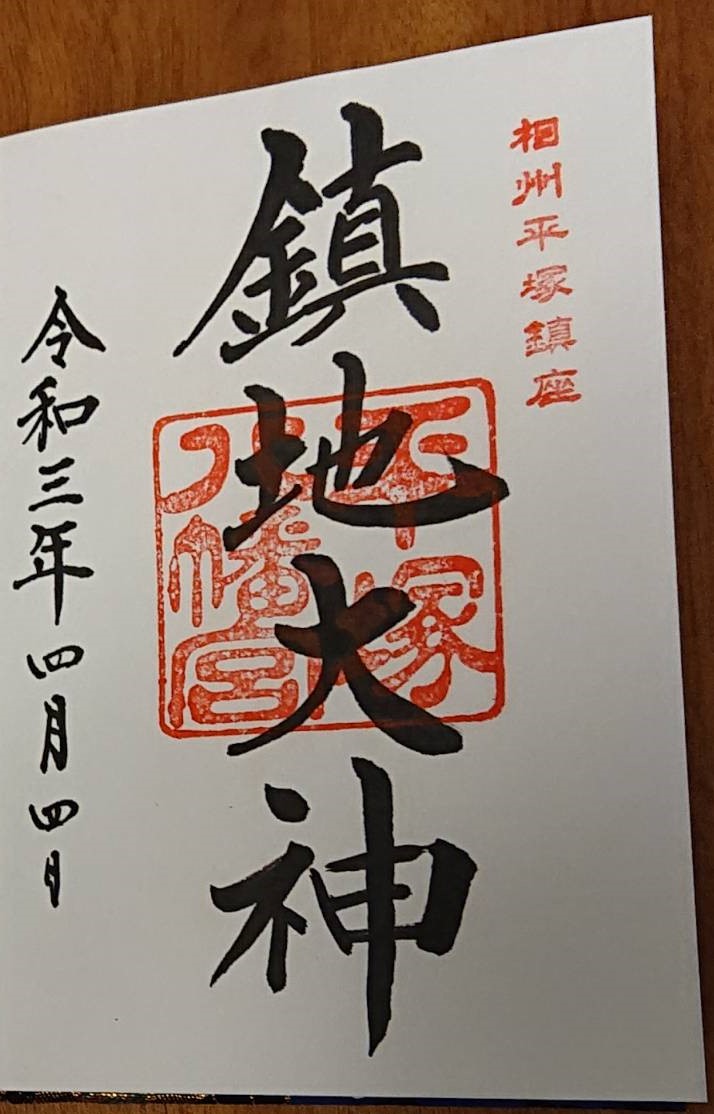 相州平塚鎮座
鎮地大神
平塚
八幡宮
令和三年四月四日